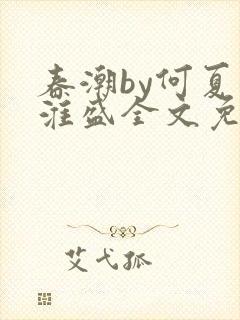 春潮by何夏
淮盛全文免
艾弋孤